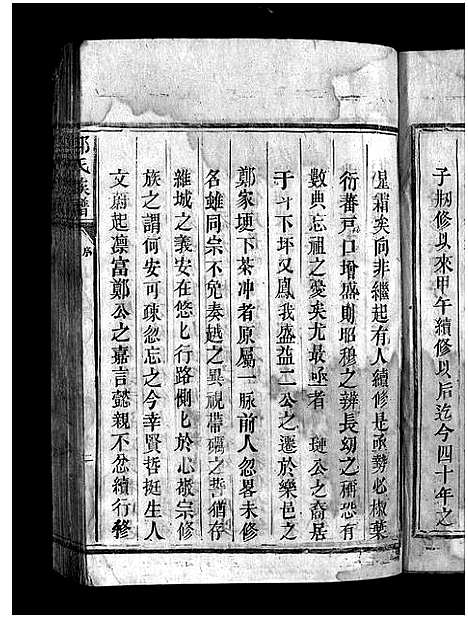 子刱修以來甲午續修以后迄今四十年之
星霜矣向非繼起有人續修是亟勢必椒葉
衍蕃戸口增盛則昭穆之辨長幼之稱恐有
數典忘祖之憂矣尤最亟者 璉公之裔居
于 斗下坪又鳳我盛益二公之遷於樂邑之
鄭家埂下茶冲者原屬一脉前人忽畧未修
名雖同宗不免秦越之異視帶礪之誓猶存
維城之義安在悠匕行路惻匕於心敬宗修
族之謂何安可疎忽忘之今幸賢哲挺生人
文蔚起凛富鄭公之嘉言懿親不忿續行修
鄭氏族譜
序
二